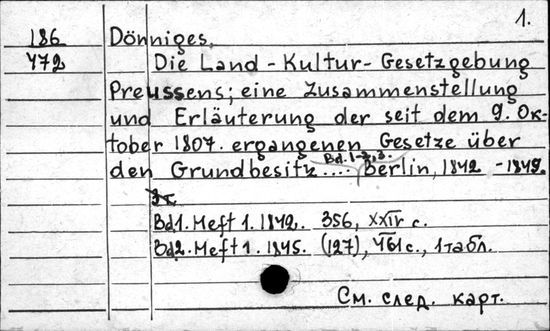 1.
186
772
Dönniges,
Die Land - Kultur - Gesetzgebung
Preussens; eine Zusammenstellung
und Erläuterung der seit dem 9. Ok-
tober 1807. ergangenen Gesetze über
Bd. 1-2, 3.
den Grundbesitz .... Berlin, 1842 - 1849.
Bd1. Heft 1. 1842. 356, XXIV с.
Bd2. Heft 1. 1845. (127), 461 с., 1 табл.
См. след. карт.